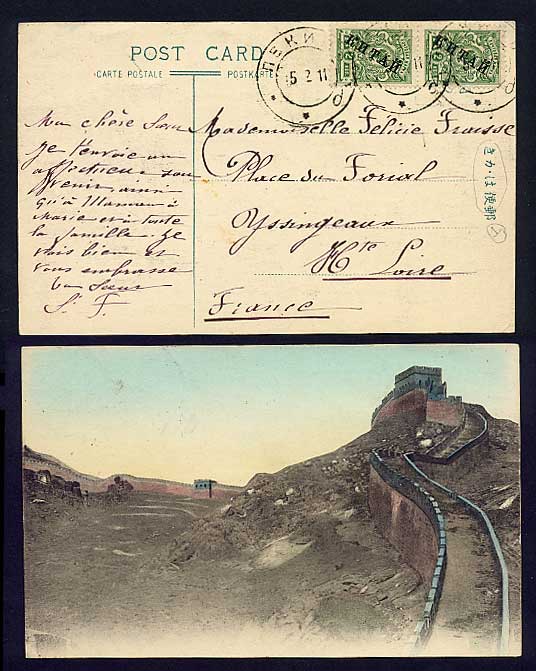 POST CARD
CARTE POSTALE
POSTKARTE
ПЕКИН
5 2 11
КИТАЙ
КИТАЙ
Ma chère Sœur
Je t'envoie un
affectueux sou
venir, ainsi
qu'à Maman à
Marie et à toute
la famille. Je
vais bien et
vous embrasse
ta Sœur
S. F.
Mademoiselle Félicie Fraisse
Place du Forial
Yssingeaux
Hte Loire
France
きかは便郵